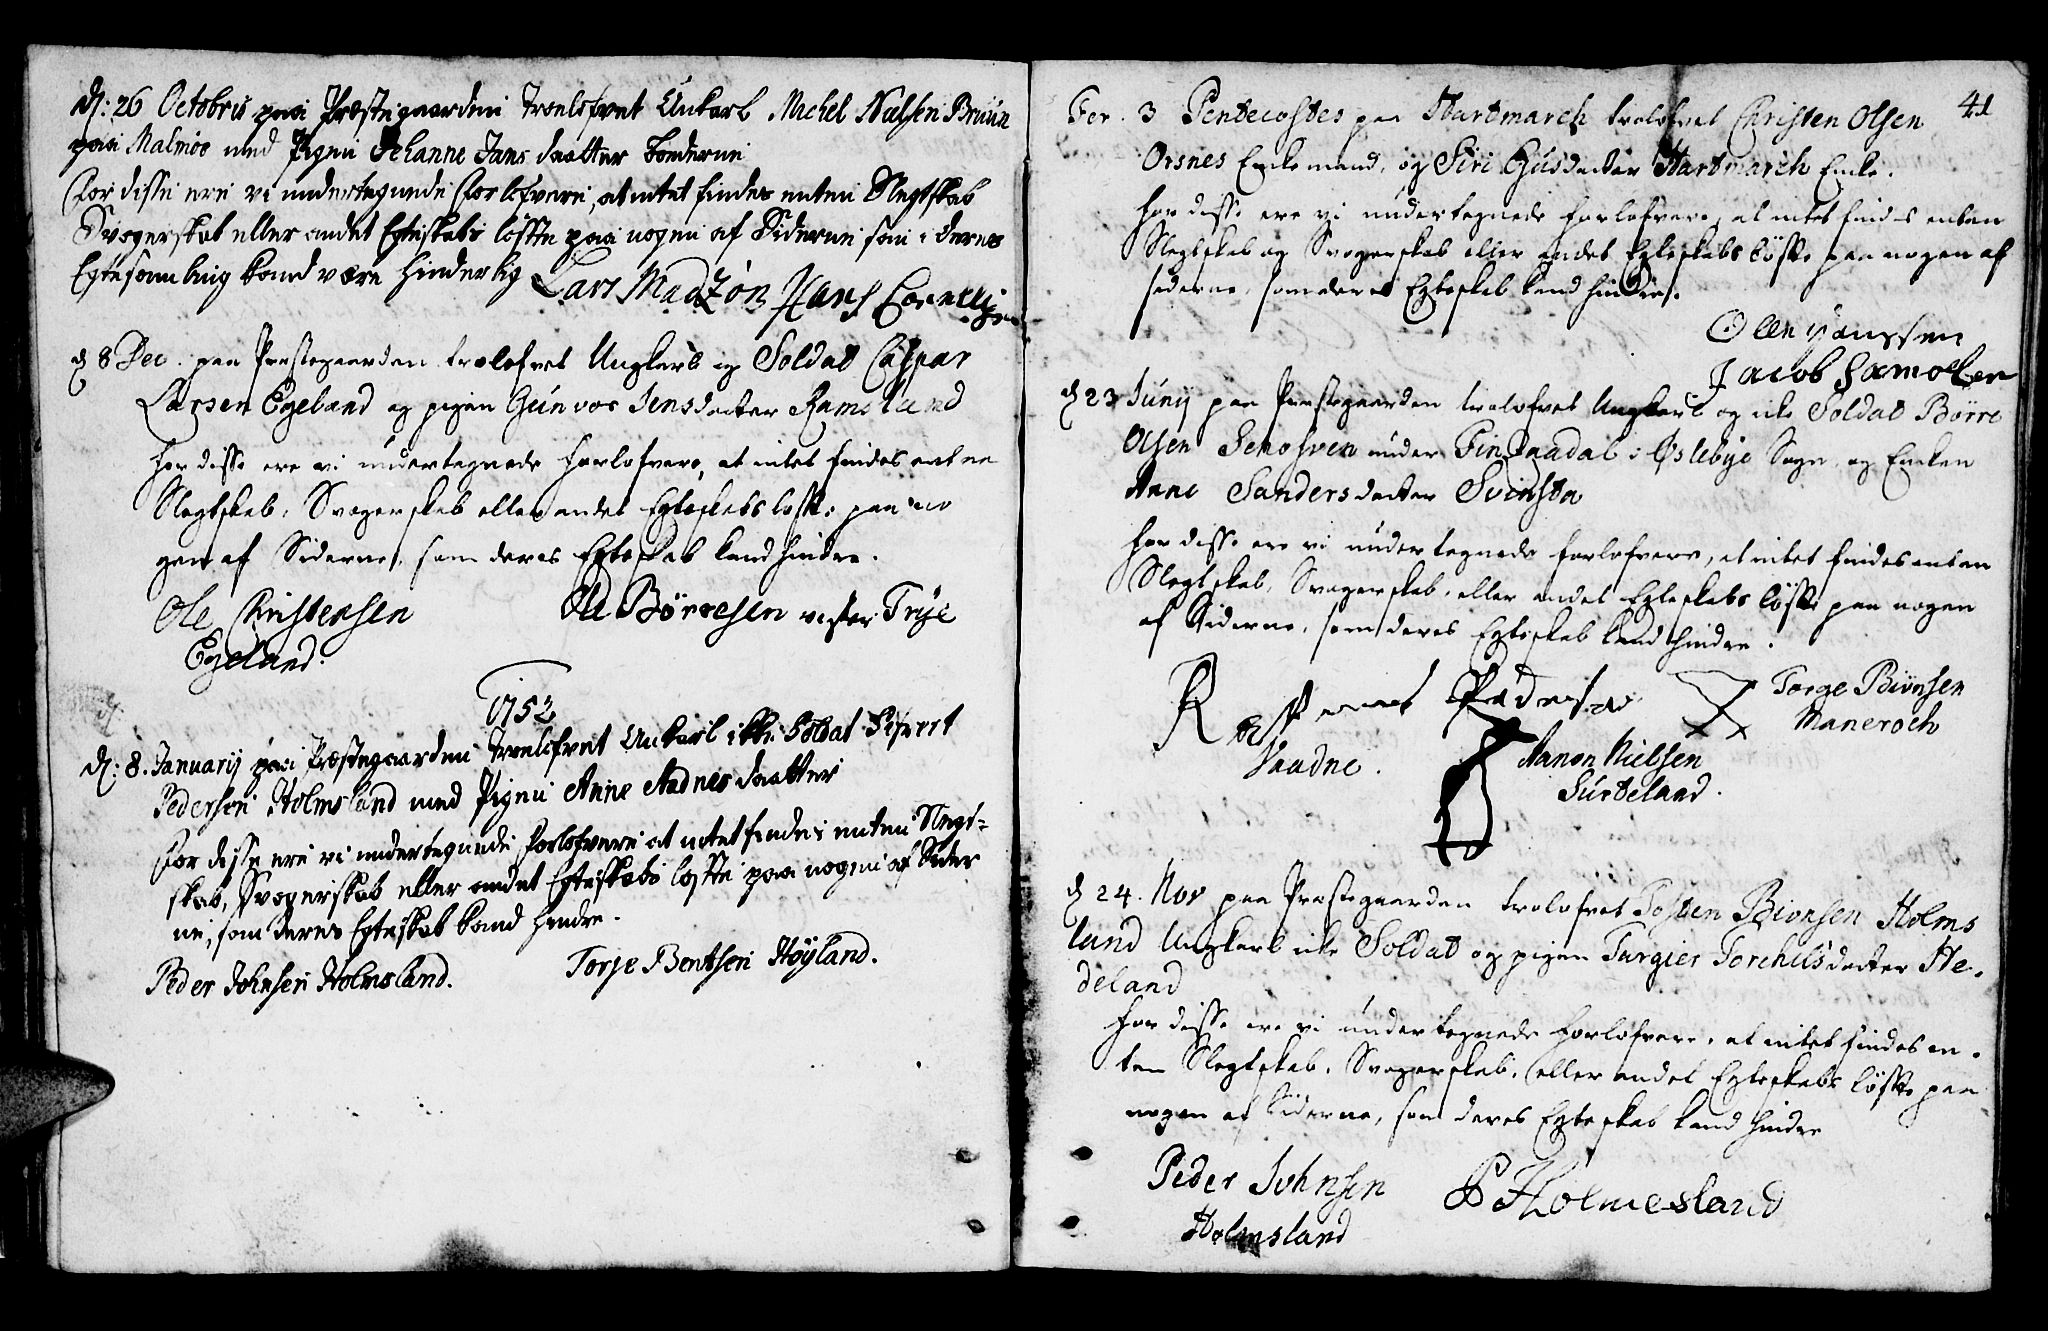 d: 26 Octobris paa Præstegaarden Troelofvet Unkarl Michel Nielsen Bruun
paa Malmøe med Pigen Jehanne Jans daatter Bonderne
For disse ere vi undertegnede Forlofvere, at intet findes enten Slegtskab
Svogerskab eller andet Egteskabs løffte paa nogen af Siderne som i deres
Egtesamling kand være hinderlig Lars Madzøn Hans Corneli
d 8 Dec. paa Præstegaarden trolofvet Ungkarl og Soldat Caspar
Larsen Egeland og pigen Gunvor Jensdatter Ramsland
For disse ere vi undertegnede Forlofvere, at intet findes enten
Slegtskab, Svogerskab eller andet Egteskabs løffte paa no
gen af Siderne, som deres Egteskab kand hindre.
Ole Christensen Ole Børresen vester Trye
Egeland.
1752
d: 8. Januarij paa Præstegaarden Troelofvet Unkarl ikke Soldat Sifvert
Pedersen Holmsland med Pigen Anne Aadnes daatter
For disse ere vi undertegnede Forlofvere at intet findes enten Slegt-
skab, Svogerskab eller andet Egteskabs løffte paa nogen af Sider
ne, som deres Egteskab kand hindre.
Peder Johnsen Holmsland. Torje Bentsen Høyland.
41
Fer. 3 Pentecostes paa Hartmarch trolofvet Christen Olsen
Orsnes Enkemand, og Siri Gusdatter Hartmarch Enke.
For disse ere vi undertegnede Forlofvere, at intet findes enten
Slegtskab og Svogerskab eller andet Egteskabs løffte paa nogen af
siderne, som deres Egteskab kand hindre.
Olleh Janssen
Jacob Samoelsen
d 23 Junij paa Præstegaarden trolofvet Ungkarl og icke Soldat Børre
Olsen under Findaadal i Øslebye Sogn, og Encken
Anne Sandersdatter Svinsta
For disse ere vi undertegnede Forlofvere, at intet findes enten
Slegtskab, Svogerskab, eller andet Egteskabs løffte paa nogen
af Siderne, som deres Egteskab kand hindre.
Rasmus Pedersen Torge Biønsen
Vaadne. Aanon Nielsen Maneroch
Surteland.
d 24. Nov paa Præstegaarden trolofvet Tosten Bionsen Holms
land Ungkarl icke Soldat og pigen Turgier Torchilsdatter He-
deland
For disse ere vi undertegnede Forlofvere, at intet findes en-
ten Slegtskab, Svogerskab, eller andet Egteskabs løffte paa
nogen af Siderne, som deres Egteskab kand hindre
Peder Johnsen P Holmesland
Holmsland